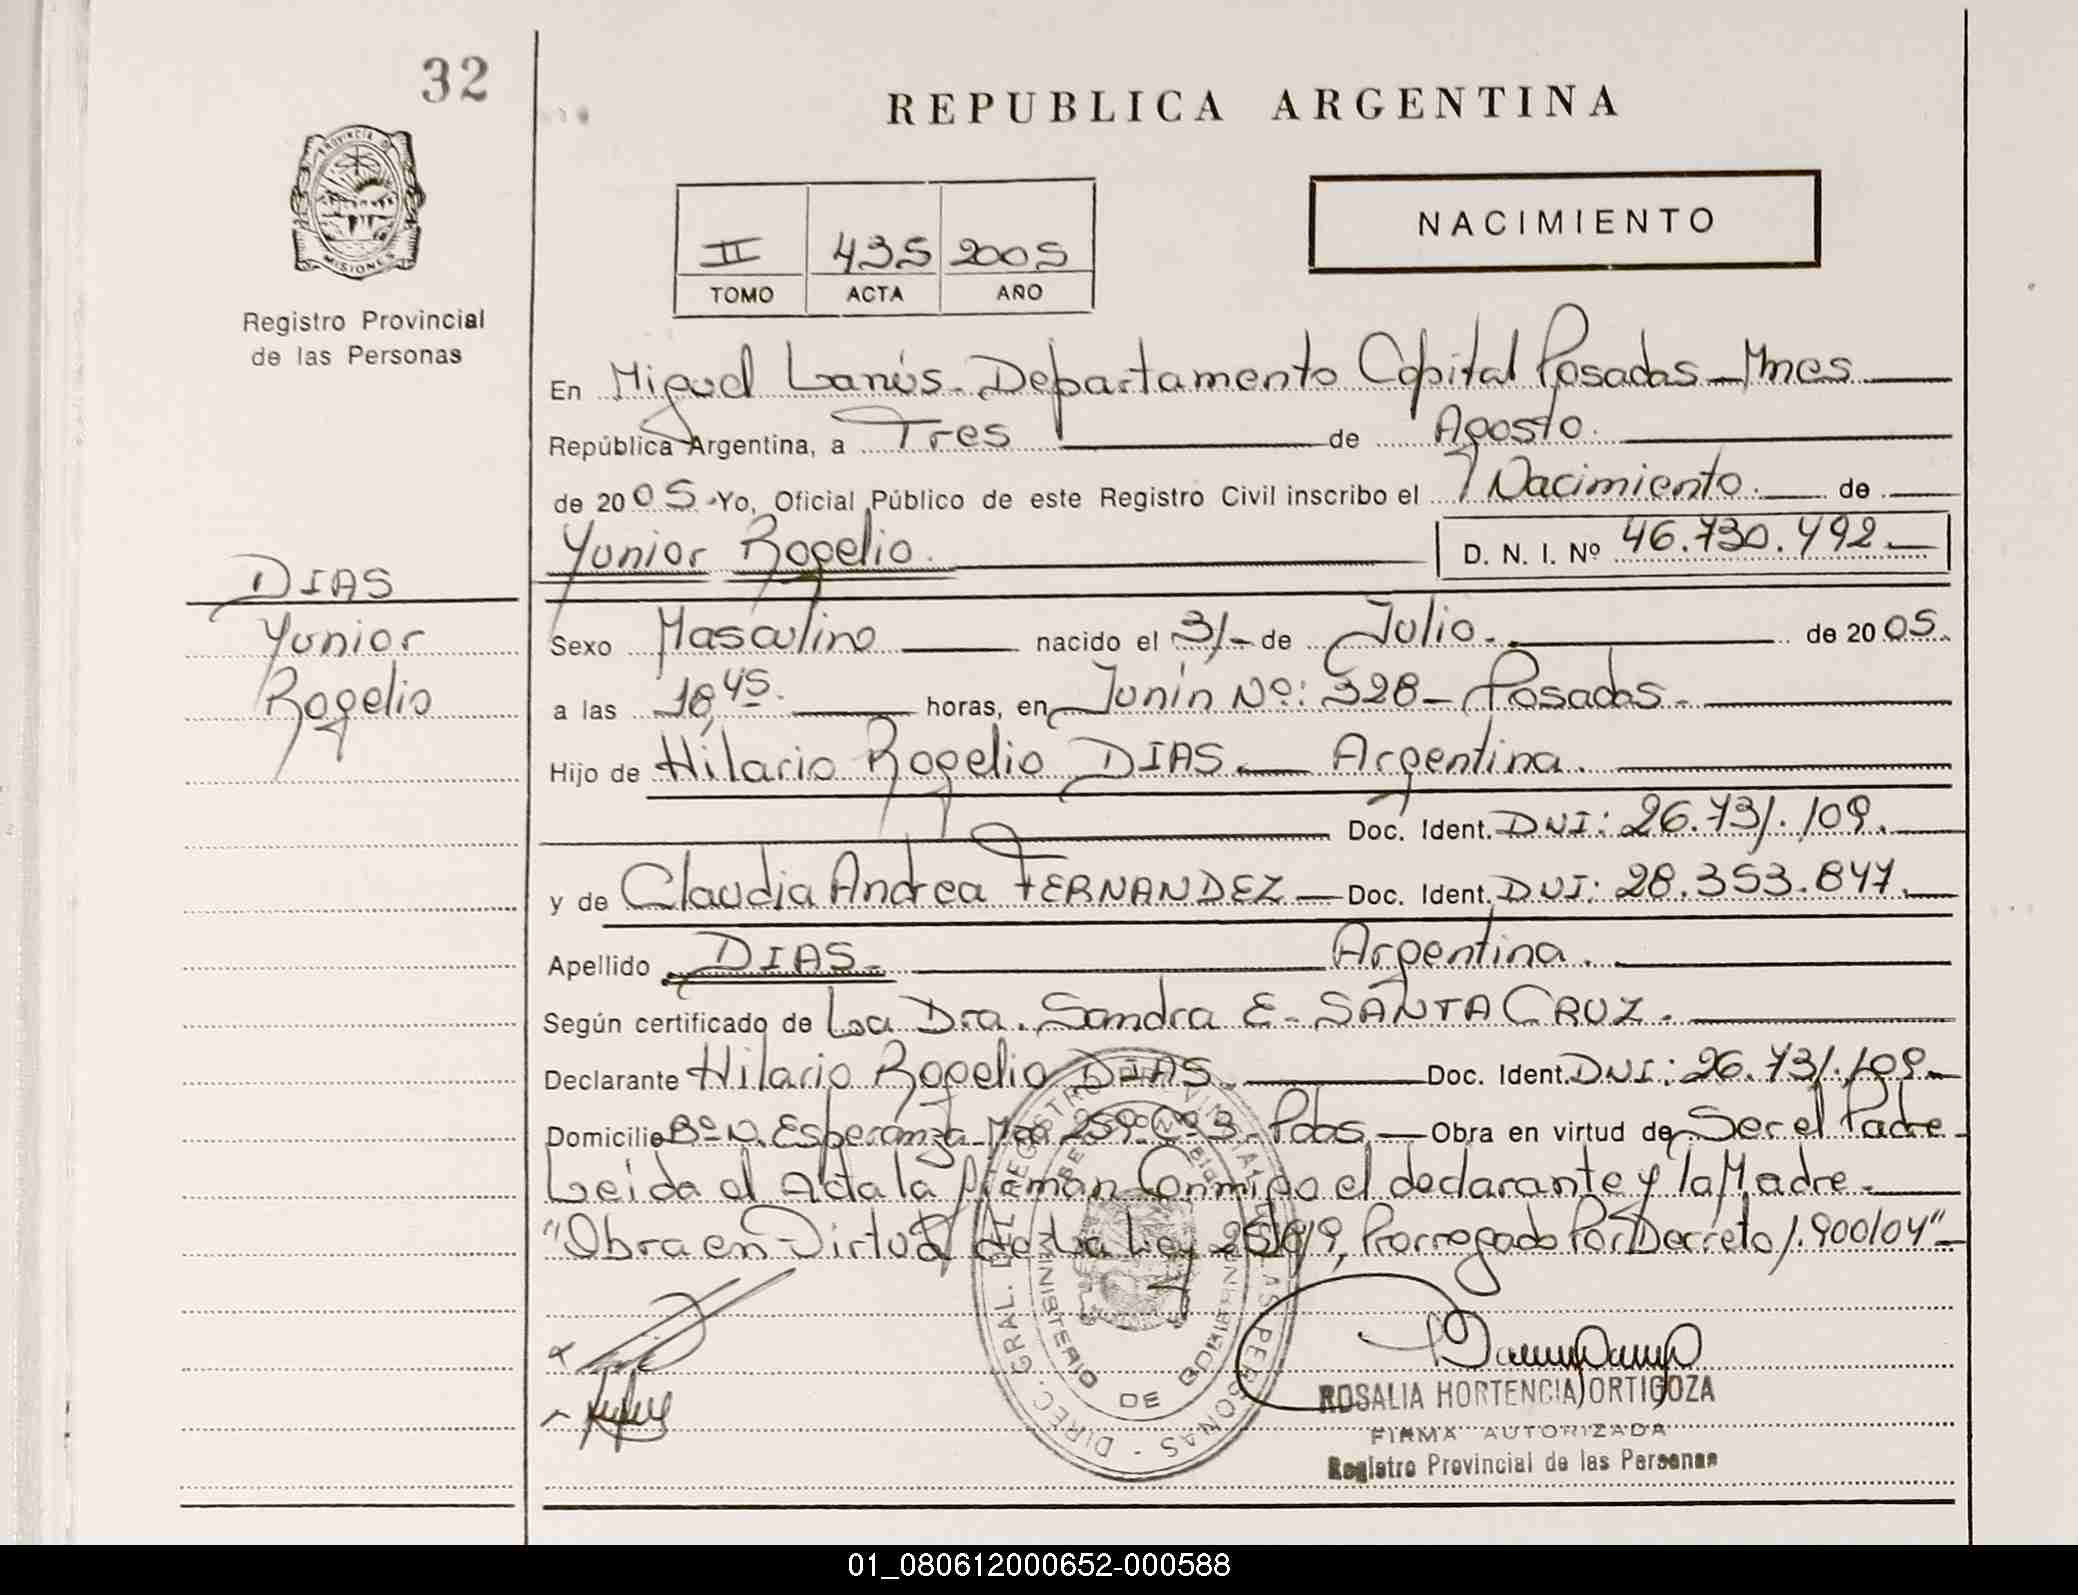 32
REPUBLICA ARGENTINA
PROVINCIA D
MISIONES
Registro Provincial
de las Personas
NACIMIENTO
II 435 2005
TOMO ACTA AÑO
En Miguel Lanús - Departamento Capital Posadas - Mnes
República Argentina, a Tres de Agosto.
de 2005 - Yo, Oficial Público de este Registro Civil inscribo el Nacimiento. de
Yunior Rogelio. D. N. I. Nº 46.730.492
DIAS
Yunior
Rogelio
Sexo Masculino nacido el 31 - de Julio. de 2005.
a las 18,45. horas, en Junín Nº: 328 - Posadas.
Hijo de Hilario Rogelio DIAS. Argentina.
Doc. Ident. DNI: 26.731.109.
y de Claudia Andrea FERNANDEZ Doc. Ident. DNI: 28.353.847.
Apellido DIAS. Argentina.
Según certificado de La Dra. Sandra E. SANTA CRUZ.
Declarante Hilario Rogelio DIAS. Doc. Ident. DNI: 26.731.109
Domicilio Bº N. Esperanza Mza 259 Cº 3 - Pdas. Obra en virtud de Ser el Padre
Leida el Acta la firman Conmigo el declarante y la Madre.
"Obra en Virtud de La Ley 25819, Prorrogado Por Decreto 1.900/04"
DIREC. GRAL. DEL REGISTRO PROVINCIAL DE LAS PERSONAS -
MINISTERIO DE GOBIERNO
ROSALIA HORTENCIA ORTIGOZA
FIRMA AUTORIZADA
Registro Provincial de las Personas
01_080612000652-000588